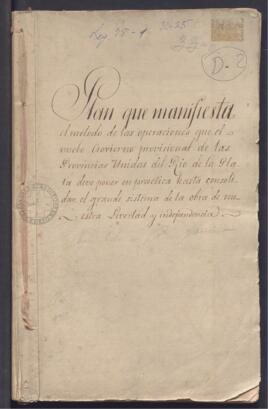 Plan que manifiesta
el método de las operaciones que el
nuebo Govierno provisional de las
Provincias Unidas del Rio de la Pla-
ta deve poner en practica hasta consoli-
dar el grande sistema de la obra de nu-
estra Livertad y independencia
D-2